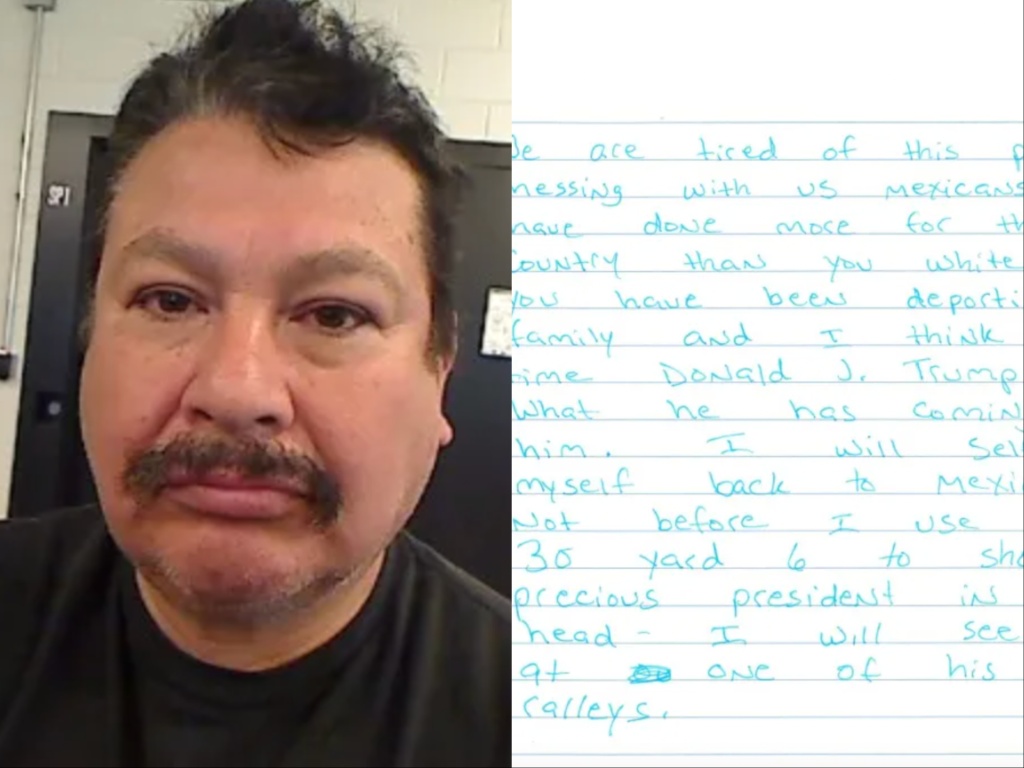 SP1
e are tired of this p
messing with us Mexicans
have done more for th
country than you white
you have been deporti
family and I think
time Donald J. Trump
What he has comin
him. I will sel
myself back to Mexi
Not before I use
30 yard 6 to sho
precious president in
head - I will see
at one of his
ralleys.